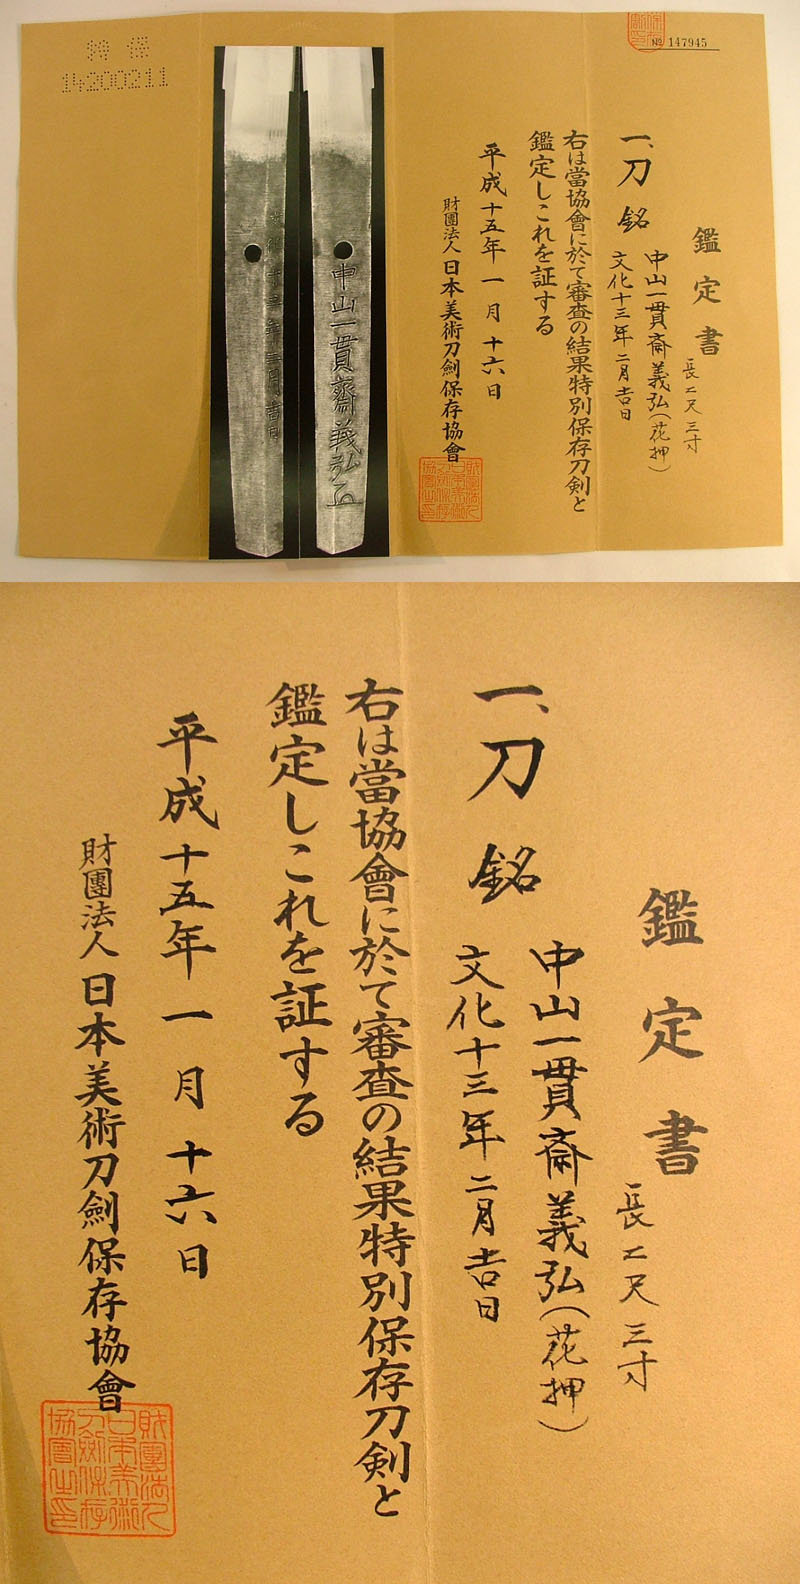 特保
14200211
№ 147945
鑑定書
長二尺三寸
一、刀 銘
中山一貫斎義弘(花押)
文化十三年二月吉日
右は當協會に於て審査の結果特別保存刀剣と
鑑定しこれを証する
平成十五年一月十六日
財團法人日本美術刀劍保存協會
中山一貫齋義弘
鑑定書
長二尺三寸
一、刀 銘
中山一貫斎義弘(花押)
文化十三年二月吉日
右は當協會に於て審査の結果特別保存刀剣と
鑑定しこれを証する
平成十五年一月十六日
財團法人日本美術刀劍保存協會
財團法人
日本美術
刀劍保存
協會之印